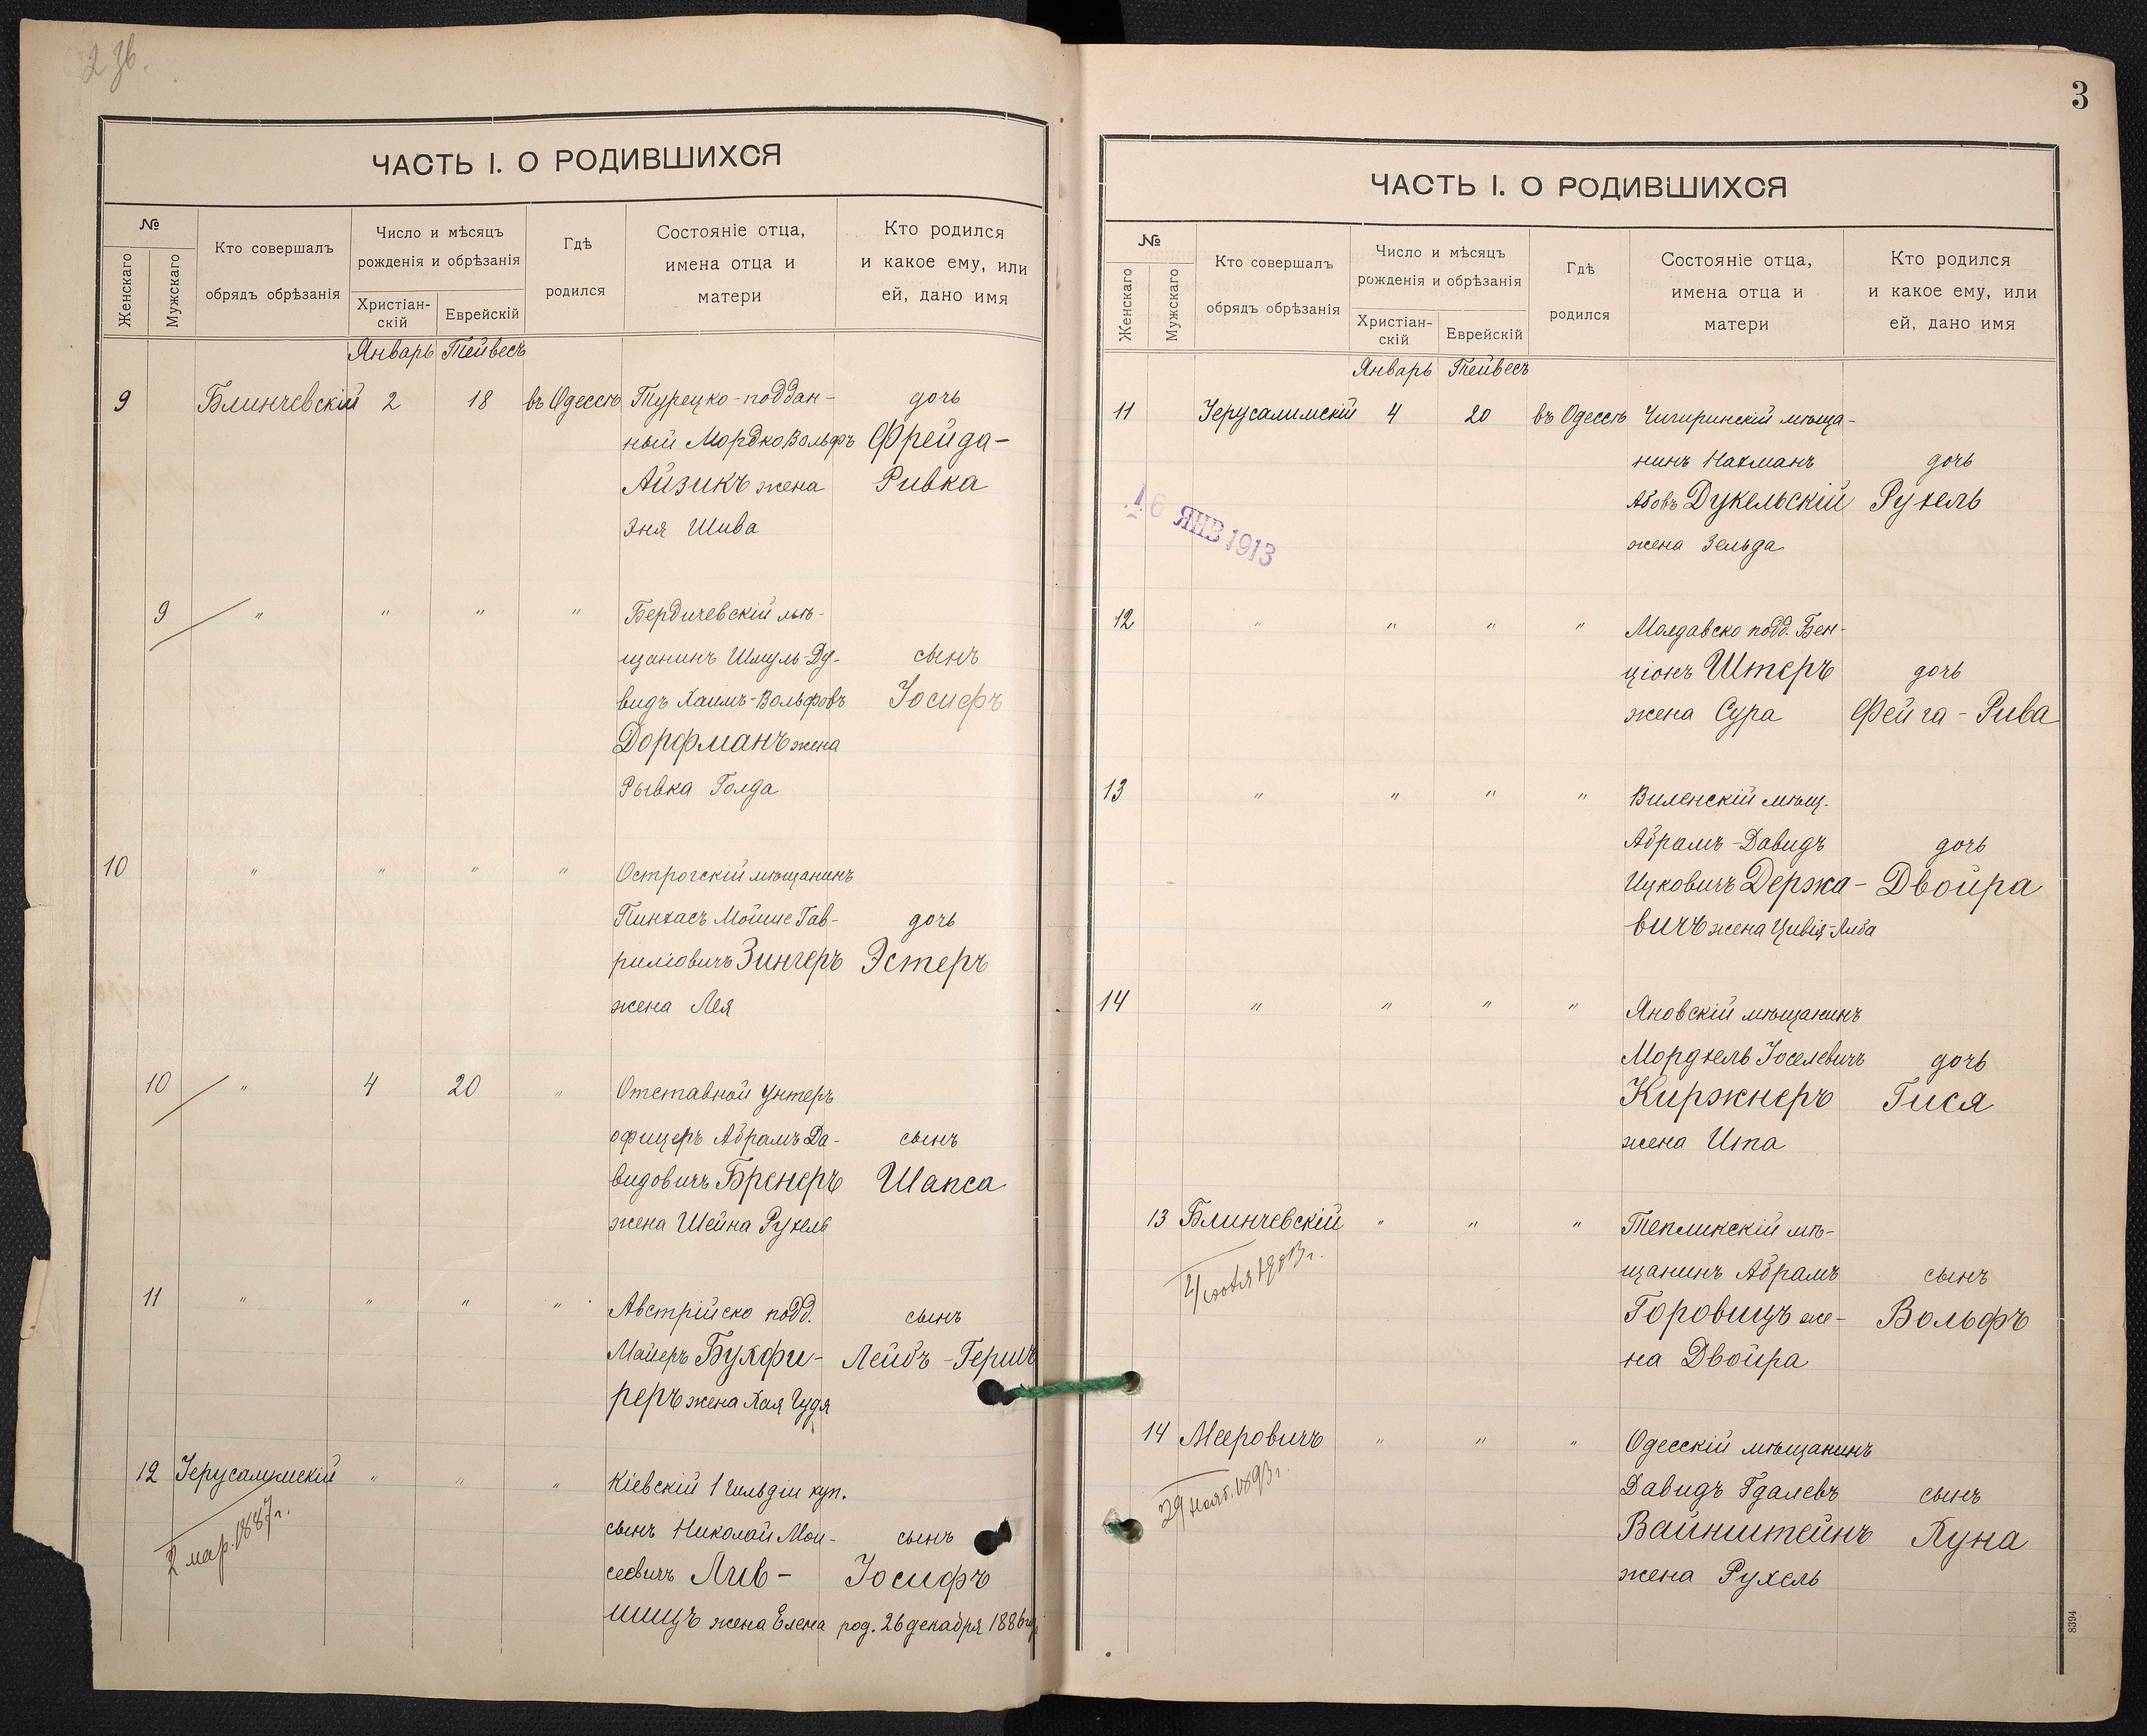 2 зв.
ЧАСТЬ I. О РОДИВШИХСЯ
№
Женскаго
Мужскаго
Кто совершалъ
обрядъ обрѣзанія
Число и мѣсяцъ
рожденія и обрѣзанія
Христіан-
скій
Еврейскій
Гдѣ
родился
Состояніе отца,
имена отца и
матери
Кто родился
и какое ему, или
ей, дано имя
Январь Тейвесъ
9 Блинчевскій 2 18 въ Одессѣ Турецко-поддан- дочь
ный Мордко Вольфъ Фрейда-
Айзикъ жена Ривка
Эня Шива
9 " " " " Бердичевскій мѣ-
щанинъ Шмуль-Ду- сынъ
видъ Хаимъ-Вольфовъ Іосифъ
Дорфманъ жена
Рывка Голда
10 " " " " Острогскій мѣщанинъ
Пинхасъ Мойше Гав- дочь
риловичъ Зингеръ Эстеръ
жена Лея
10 " 4 20 " Отставной унтеръ
офицеръ Абрамъ Да- сынъ
видовичъ Бренеръ Шапса
жена Шейна Рухель
11 " " " " Австрійско подд. сынъ
Майеръ Бухфи- Лейбъ-Гершъ
реръ жена Хая Гудя
12 Іерусалимскій " " " Кіевскій 1 гильдіи куп.
2 мар. 1887 г.
сынъ Николай Мои- сынъ
сеевичъ Лив- Іосифъ
шицъ жена Елена род. 26 декабря 1886 г.
3
ЧАСТЬ I. О РОДИВШИХСЯ
№
Женскаго
Мужскаго
Кто совершалъ
обрядъ обрѣзанія
Число и мѣсяцъ
рожденія и обрѣзанія
Христіан-
скій
Еврейскій
Гдѣ
родился
Состояніе отца,
имена отца и
матери
Кто родился
и какое ему, или
ей, дано имя
Январь Тейвесъ
11 Іерусалимскій 4 20 въ Одессѣ Чигиринскій мѣща-
нинъ Нахманъ дочь
Абовъ Дукельскій Рухель
жена Зельда
16 ЯНВ 1913
12 " " " " Молдавско подд. Бен-
ціонъ Штеръ дочь
жена Сура Фейга-Рива
13 " " " " Виленскій мѣщ.
Абрамъ-Давидъ дочь
Ицковичъ Держа- Двойра
вичъ жена Цивія-Либа
14 " " " " Яновскій мѣщанинъ
Мордхель Іоселевичъ дочь
Киржнеръ Гися
жена Ита
13 Блинчевскій " " " Тепликскій мѣ-
щанинъ Абрамъ сынъ
Горовицъ же- Вольфъ
на Двойра
14 Мееровичъ " " " Одесскій мѣщанинъ
29 нояб. 1893 г.
Давидъ Гдалевъ сынъ
Вайнштейнъ Хуна
жена Рухель
8394